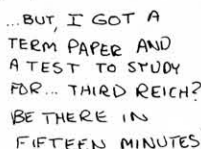 ...BUT, I GOT A
TERM PAPER AND
A TEST TO STUDY
FOR... THIRD REICH?
BE THERE IN
FIFTEEN MINUTES